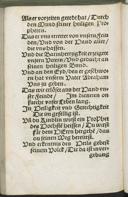 Als er vorzeiten geredt hat / Durch
den Mund seiner heiligen Pro-
pheten.
Das er uns errettet von unsern Fein-
den / Und von der Hand aller / die
uns hassen.
Und die Barmherzigkeit erzeigete
unsern Vetern / Und gedechte an
seinen heiligen Bund.
Und an den Eyd / den er geschwo-
ren hat unserm Vater Abraham
Uns zu geben.
Das wir erlöset aus der Hand un-
ser Feinde / Im dieneten on
furcht unser Leben lang.
In Heiligkeit und Gerechtigkeit
Die im gefellig ist.
Und du Kindlin wirst ein Prophet
des Höhesten heissen / Du wirst
für dem HErrn hergehen / das
du seinen Weg bereitest.
Und erkentnis des Heils gebest
seinem Volck / Die da ist in ver-
gebung